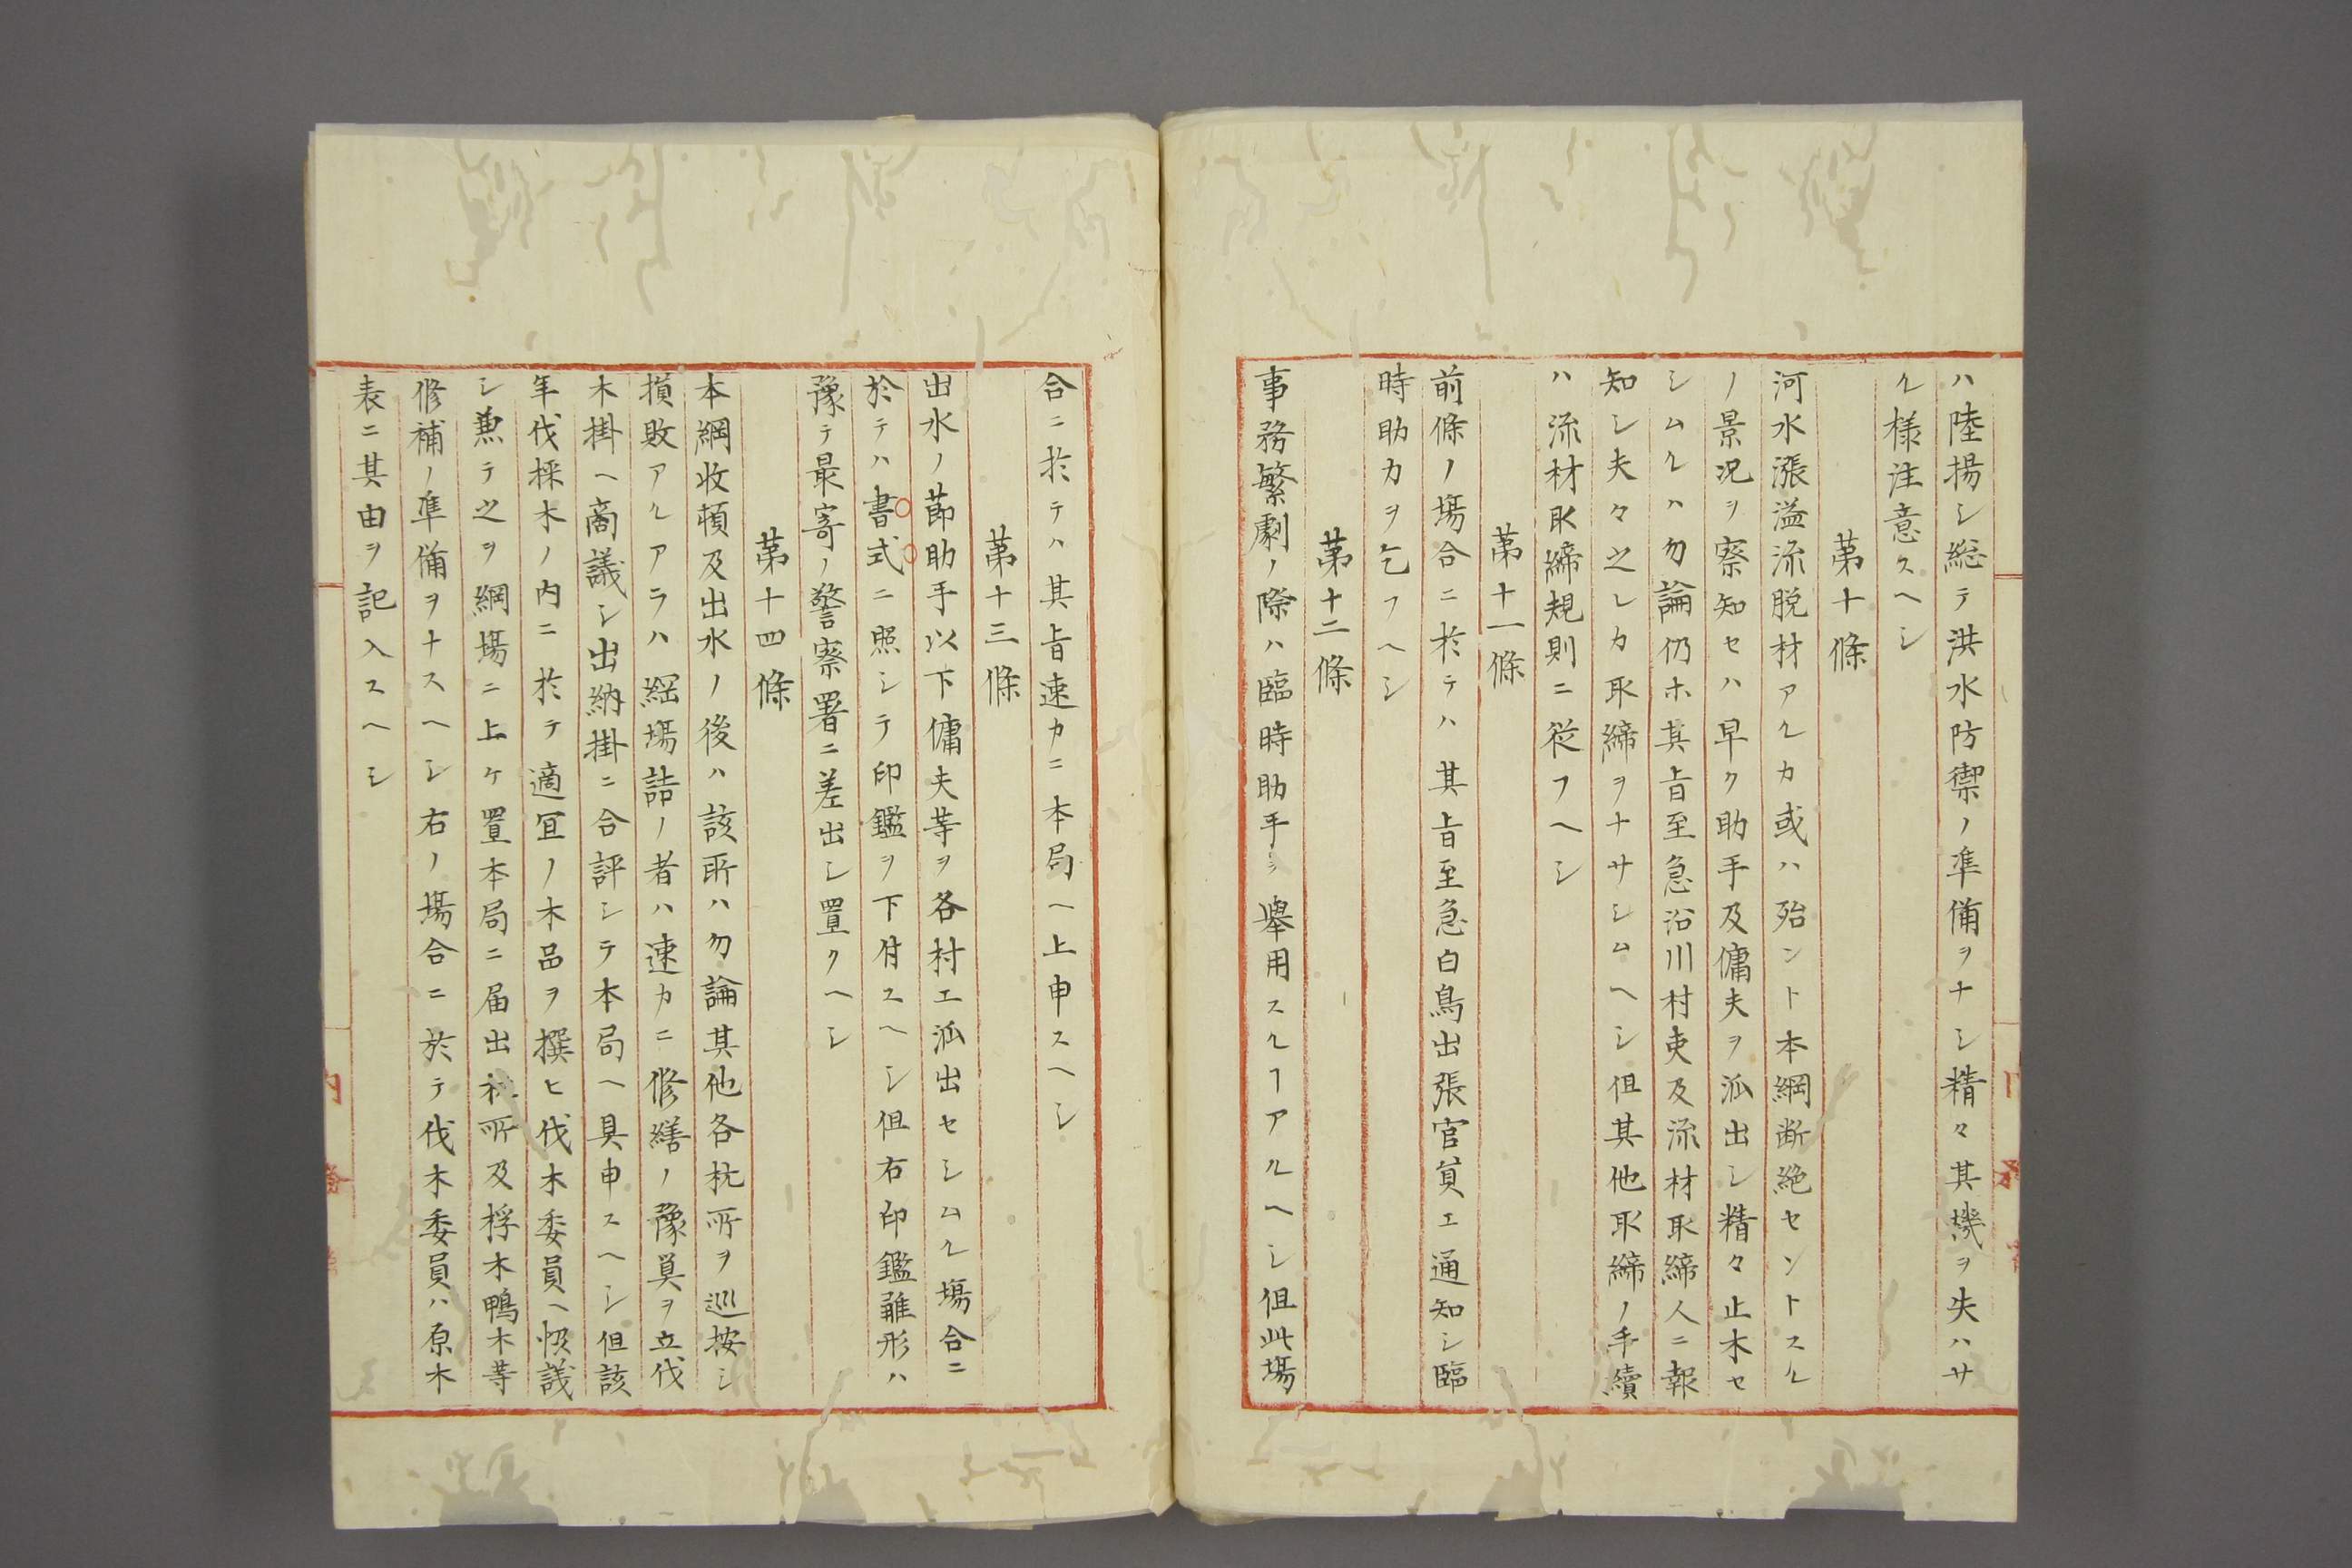 ハ陸揚シ総テ洪水防禦ノ準備ヲナシ精々其機ヲ失ハサ
ル様注意スヘシ
第十條
河水漲溢流脱材アルカ或ハ殆ント本綱断絶セントスル
ノ景況ヲ察知セハ早ク助手及傭夫ヲ派出シ精々止木セ
シムルハ勿論仍ホ其旨至急沿川村吏及流材取締人ニ報
知シ夫々之レカ取締ヲナサシムヘシ但其他取締ノ手續
ハ流材取締規則ニ從フヘシ
第十一條
前條ノ塲合ニ於テハ其旨至急白鳥出張官員エ通知シ臨
時助力ヲ乞フヘシ
第十二條
事務繁劇ノ際ハ臨時助手ヲ擧用スルヿアルヘシ但此塲
合ニ於テハ其旨速カニ本局ヘ上申スヘシ
第十三條
出水ノ節助手以下傭夫等ヲ各村エ派出セシムル塲合ニ
於テハ書式ニ照シテ印鑑ヲ下付スヘシ但右印鑑雛形ハ
豫テ最寄ノ警察署ニ差出シ置クヘシ
第十四條
本綱收頓及出水ノ後ハ該所ハ勿論其他各杭所ヲ巡按シ
損敗アルアラハ綱塲詰ノ者ハ速カニ修繕ノ豫算ヲ立伐
木掛ヘ商議シ出納掛ニ合評シテ本局ヘ具申スヘシ但該
年伐採木ノ内ニ於テ適宜ノ木品ヲ撰ヒ伐木委員ヘ協議
シ兼テ之ヲ綱塲ニ上ケ置本局ニ届出杭所及桴木鴨木等
修補ノ準備ヲナスヘシ右ノ塲合ニ於テ伐木委員ハ原木
表ニ其由ヲ記入スヘシ